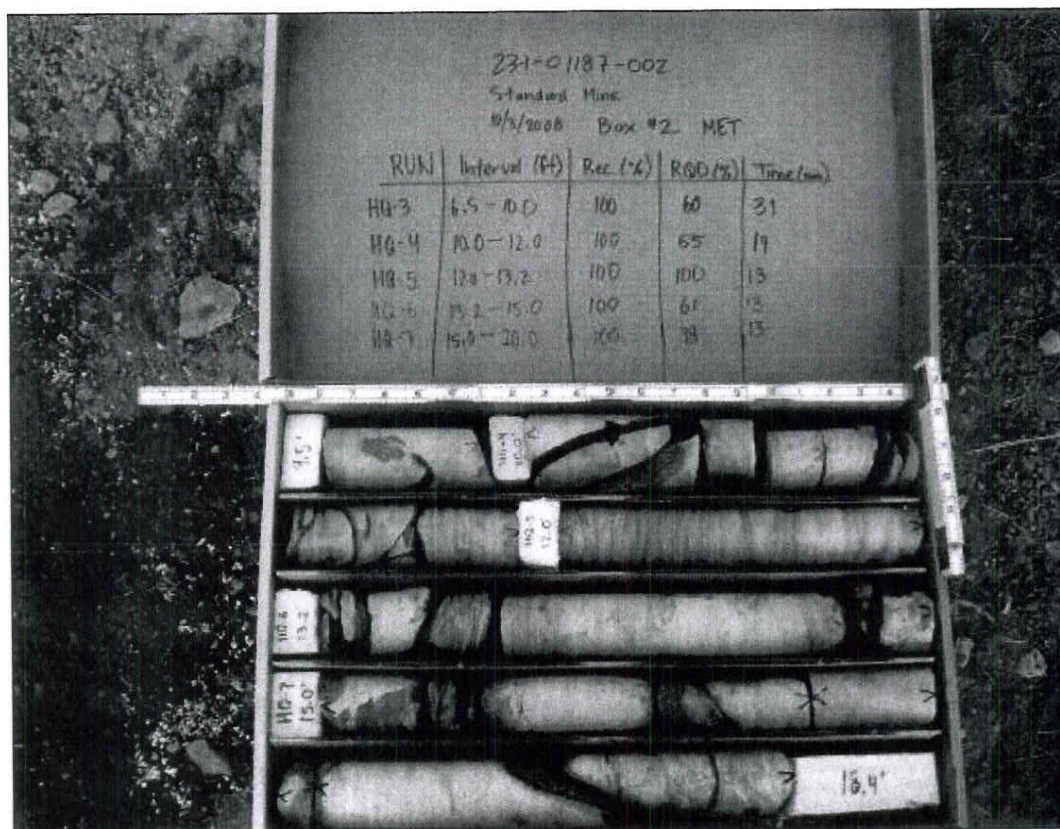 231-01187-002
Standard Mine
10/3/2008 Box #2 MET
RUN Interval (ft) Rec (%) RQD (%) Time (min)
HQ-3 6.5-10.0 100 60 31
HQ-4 10.0-12.0 100 65 19
HQ-5 12.0-13.2 100 100 13
HQ-6 13.2-15.0 100 61 13
HQ-7 15.0-20.0 100 38 13
9.5'
HQ-4
10.0'
HQ-5
12.0
HQ-6
13.2
HQ-7
15.0'
16.4'